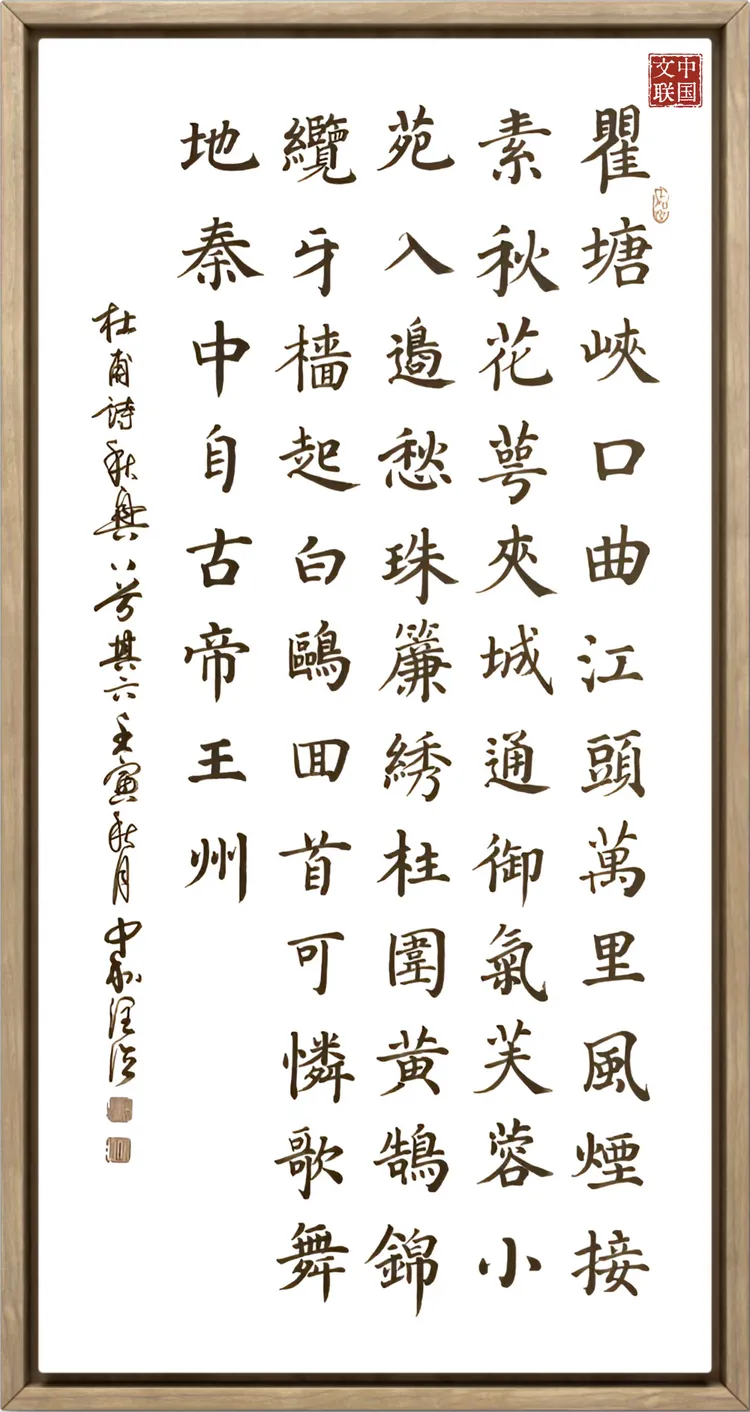 中国
文联
瞿塘峽口曲江頭萬里風煙接
素秋花萼夾城通御氣芙蓉小
苑入邉愁珠簾綉柱圍黄鵠錦
纜牙檣起白鷗囬首可憐歌舞
地秦中自古帝王州
杜甫詩秋興八首其六壬寅秋月中和